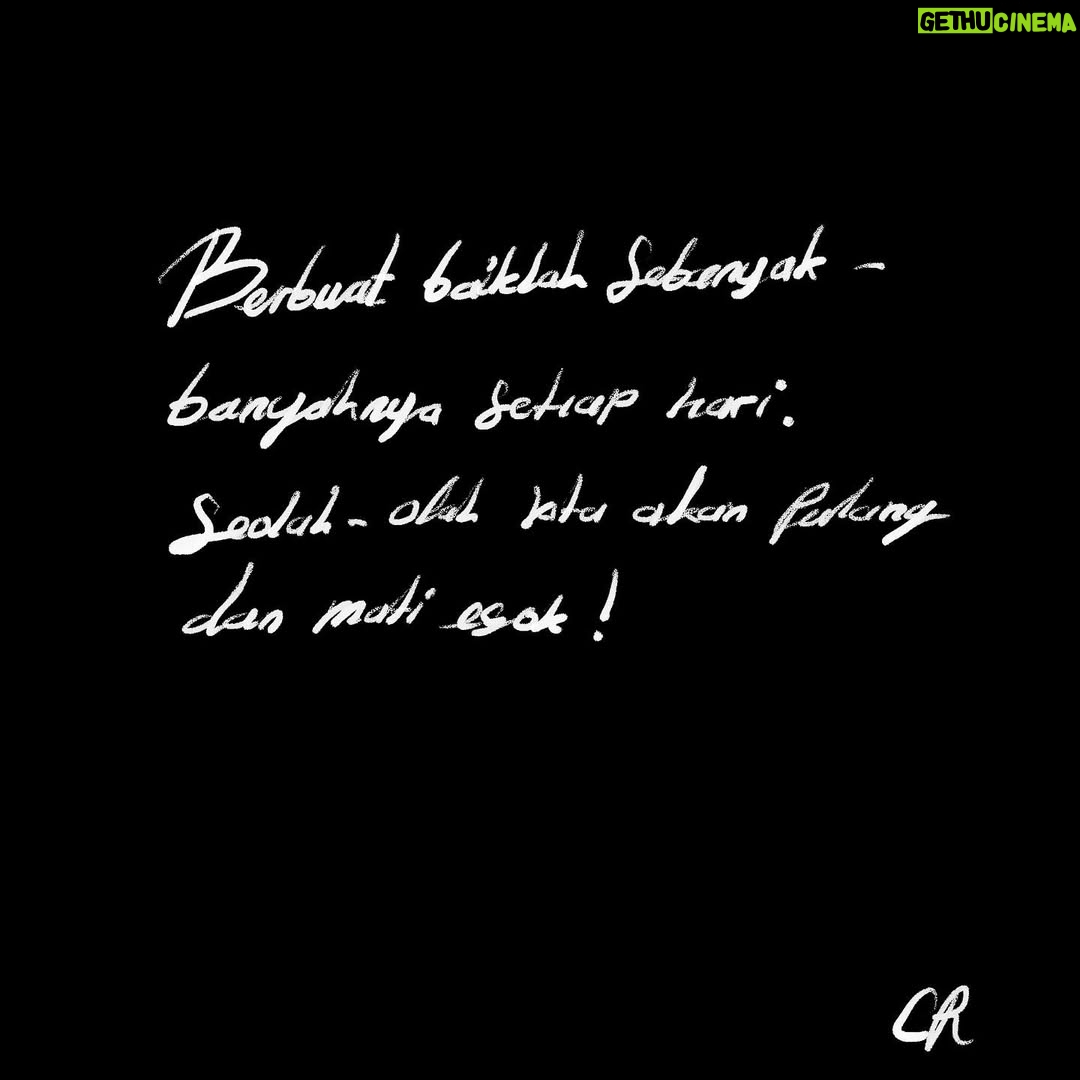 GETHUCINEMA
Berbuat baiklah sebanyak -
banyaknya setiap hari.
Seolah - olah kita akan pulang
dan mati esok !
CR